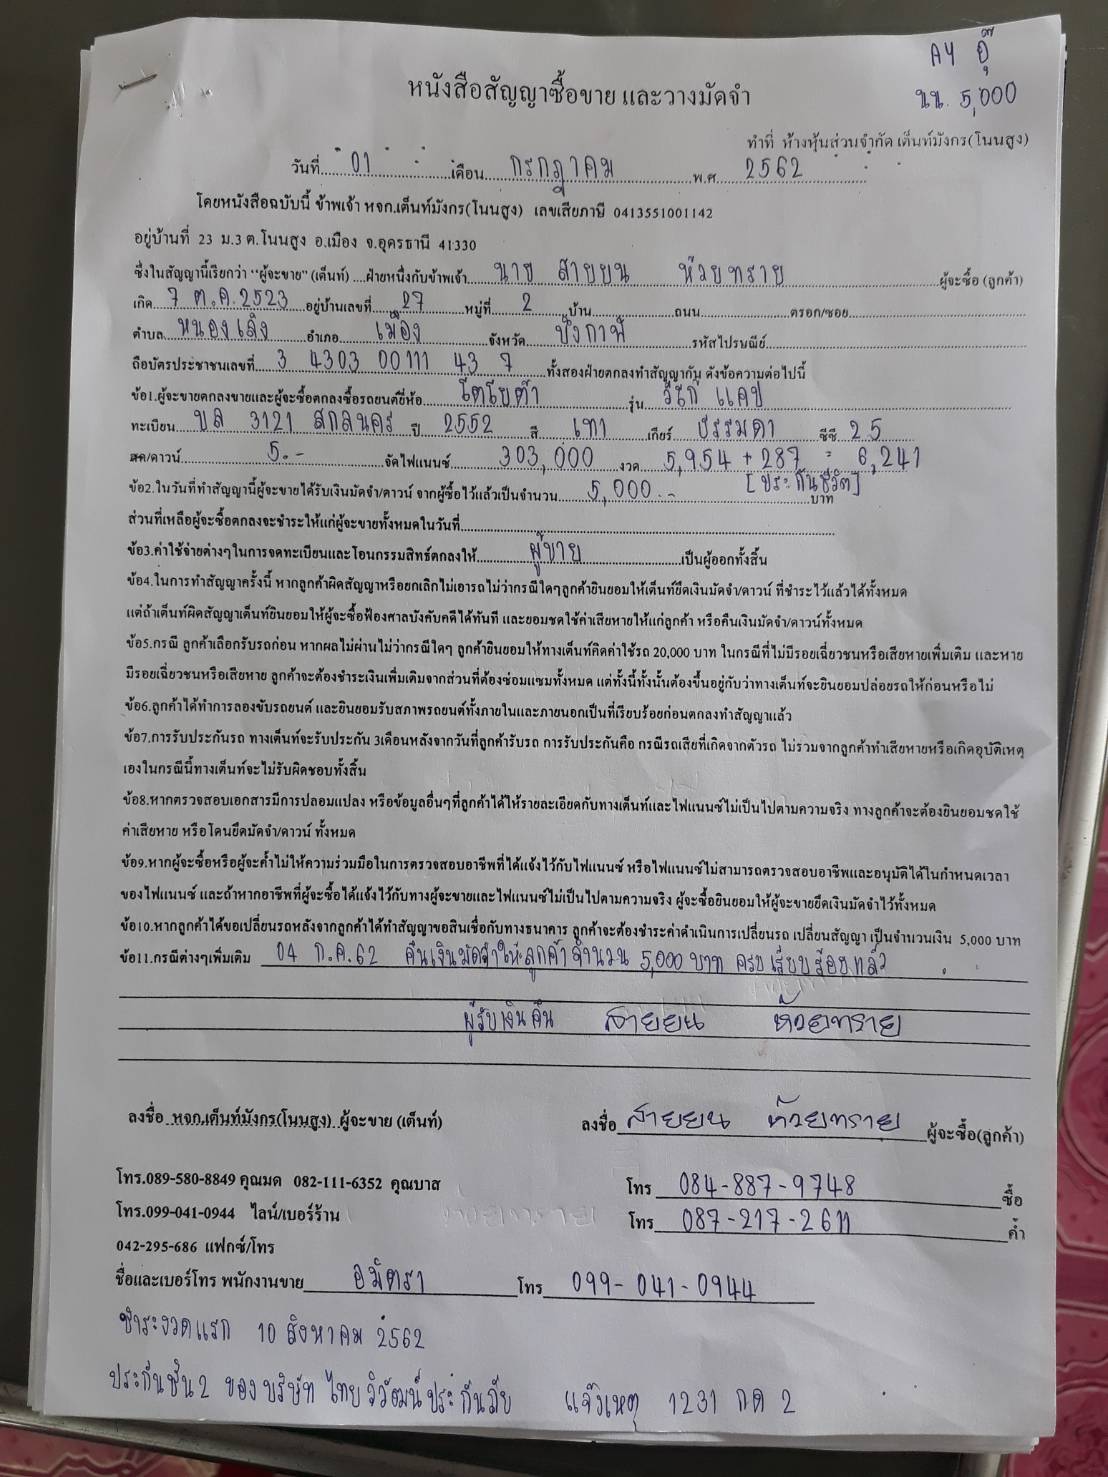 AY อุ๊
นน. 5,000
หนังสือสัญญาซื้อขาย และวางมัดจำ
ทำที่ ห้างหุ้นส่วนจำกัด เต็นท์มังกร(โนนสูง)
วันที่ 01 เดือน กรกฎาคม พ.ศ. 2562
โดยหนังสือฉบับนี้ ข้าพเจ้า หจก.เต็นท์มังกร(โนนสูง) เลขเสียภาษี 0413551001142
อยู่บ้านที่ 23 ม.3 ต.โนนสูง อ.เมือง จ.อุดรธานี 41330
ซึ่งในสัญญานี้เรียกว่า "ผู้จะขาย" (เต็นท์) ....ฝ่ายหนึ่งกับข้าพเจ้า นาย สายยน ห้วยทราย ผู้จะซื้อ (ลูกค้า)
เกิด 7 ต.ค. 2523 อยู่บ้านเลขที่ 27 หมู่ที่ 2 บ้าน ถนน ตรอก/ซอย
ตำบล หนองเลิง อำเภอ เมือง จังหวัด บึงกาฬ รหัสไปรษณีย์
ถือบัตรประชาชนเลขที่ 3 4303 00111 43 7 ทั้งสองฝ่ายตกลงทำสัญญากัน ดังข้อความต่อไปนี้
ข้อ1.ผู้จะขายตกลงขายและผู้จะซื้อตกลงซื้อรถยนต์ยี่ห้อ โตโยต้า รุ่น วีโก้ แคป
ทะเบียน บล 3121 สกลนคร ปี 2552 สี เทา เกียร์ ธรรมดา ซีซี 2.5
สด/ดาวน์ 5.- จัดไฟแนนซ์ 303,000 งวด 5,954 + 287 = 6,241
[ประกันชีวิต]
ข้อ2.ในวันที่ทำสัญญานี้ผู้จะขายได้รับเงินมัดจำ/ดาวน์ จากผู้ซื้อไว้แล้วเป็นจำนวน 5,000.- บาท
ส่วนที่เหลือผู้จะซื้อตกลงจะชำระให้แก่ผู้จะขายทั้งหมดในวันที่
ข้อ3.ค่าใช้จ่ายต่างๆในการจดทะเบียนและโอนกรรมสิทธิ์ตกลงให้ ผู้ขาย เป็นผู้ออกทั้งสิ้น
ข้อ4.ในการทำสัญญาครั้งนี้ หากลูกค้าผิดสัญญาหรือยกเลิกไม่เอารถไม่ว่ากรณีใดๆลูกค้ายินยอมให้เต็นท์ยึดเงินมัดจำ/ดาวน์ ที่ชำระไว้แล้วได้ทั้งหมด
แต่ถ้าเต็นท์ผิดสัญญาเต็นท์ยินยอมให้ผู้จะซื้อฟ้องศาลบังคับคดีได้ทันที และยอมชดใช้ค่าเสียหายให้แก่ลูกค้า หรือคืนเงินมัดจำ/ดาวน์ทั้งหมด
ข้อ5.กรณี ลูกค้าเลือกรับรถก่อน หากผลไม่ผ่านไม่ว่ากรณีใดๆ ลูกค้ายินยอมให้ทางเต็นท์คิดค่าใช้รถ 20,000 บาท ในกรณีที่ไม่มีรอยเฉี่ยวชนหรือเสียหายเพิ่มเติม และหาย
มีรอยเฉี่ยวชนหรือเสียหาย ลูกค้าจะต้องชำระเงินเพิ่มเติมจากส่วนที่ต้องซ่อมแซมทั้งหมด แต่ทั้งนี้ทั้งนั้นต้องขึ้นอยู่กับว่าทางเต็นท์จะยินยอมปล่อยรถให้ก่อนหรือไม่
ข้อ6.ลูกค้าได้ทำการลองขับรถยนต์ และยินยอมรับสภาพรถยนต์ทั้งภายในและภายนอกเป็นที่เรียบร้อยก่อนตกลงทำสัญญาแล้ว
ข้อ7.การรับประกันรถ ทางเต็นท์จะรับประกัน 3เดือนหลังจากวันที่ลูกค้ารับรถ การรับประกันคือ กรณีรถเสียที่เกิดจากตัวรถ ไม่รวมจากลูกค้าทำเสียหายหรือเกิดอุบัติเหตุ
เองในกรณีนี้ทางเต็นท์จะไม่รับผิดชอบทั้งสิ้น
ข้อ8.หากตรวจสอบเอกสารมีการปลอมแปลง หรือข้อมูลอื่นๆที่ลูกค้าได้ให้รายละเอียดกับทางเต็นท์และไฟแนนซ์ไม่เป็นไปตามความจริง ทางลูกค้าจะต้องยินยอมชดใช้
ค่าเสียหาย หรือโดนยึดมัดจำ/ดาวน์ ทั้งหมด
ข้อ9.หากผู้จะซื้อหรือผู้จะค้ำไม่ให้ความร่วมมือในการตรวจสอบอาชีพที่ได้แจ้งไว้กับไฟแนนซ์ หรือไฟแนนซ์ไม่สามารถตรวจสอบอาชีพและอนุมัติได้ในกำหนดเวลา
ของไฟแนนซ์ และถ้าหากอาชีพที่ผู้จะซื้อได้แจ้งไว้กับทางผู้จะขายและไฟแนนซ์ไม่เป็นไปตามความจริง ผู้จะซื้อยินยอมให้ผู้จะขายยึดเงินมัดจำไว้ทั้งหมด
ข้อ10.หากลูกค้าได้ขอเปลี่ยนรถหลังจากลูกค้าได้ทำสัญญาขอสินเชื่อกับทางธนาคาร ลูกค้าจะต้องชำระค่าดำเนินการเปลี่ยนรถ เปลี่ยนสัญญา เป็นจำนวนเงิน 5,000 บาท
ข้อ11.กรณีต่างๆเพิ่มเติม 04 ก.ค.62 คืนเงินมัดจำให้ลูกค้าจำนวน 5,000 บาท ครบเรียบร้อยแล้ว
ผู้รับเงินคืน สายยน ห้วยทราย
ลงชื่อ หจก.เต็นท์มังกร(โนนสูง) ผู้จะขาย (เต็นท์) ลงชื่อ สายยน ห้วยทราย ผู้จะซื้อ(ลูกค้า)
โทร.089-580-8849 คุณมด 082-111-6352 คุณบาส โทร 084-887-9748 ซื้อ
โทร.099-041-0944 ไลน์/เบอร์ร้าน โทร 087-217-2611 ค้ำ
042-295-686 แฟกซ์/โทร
ชื่อและเบอร์โทร พนักงานขาย อมิตรา โทร 099-041-0944
ชำระงวดแรก 10 สิงหาคม 2562
ประกันชั้น 2 ของ บริษัท ไทยวิวัฒน์ประกันภัย แจ้งเหตุ 1231 กด 2